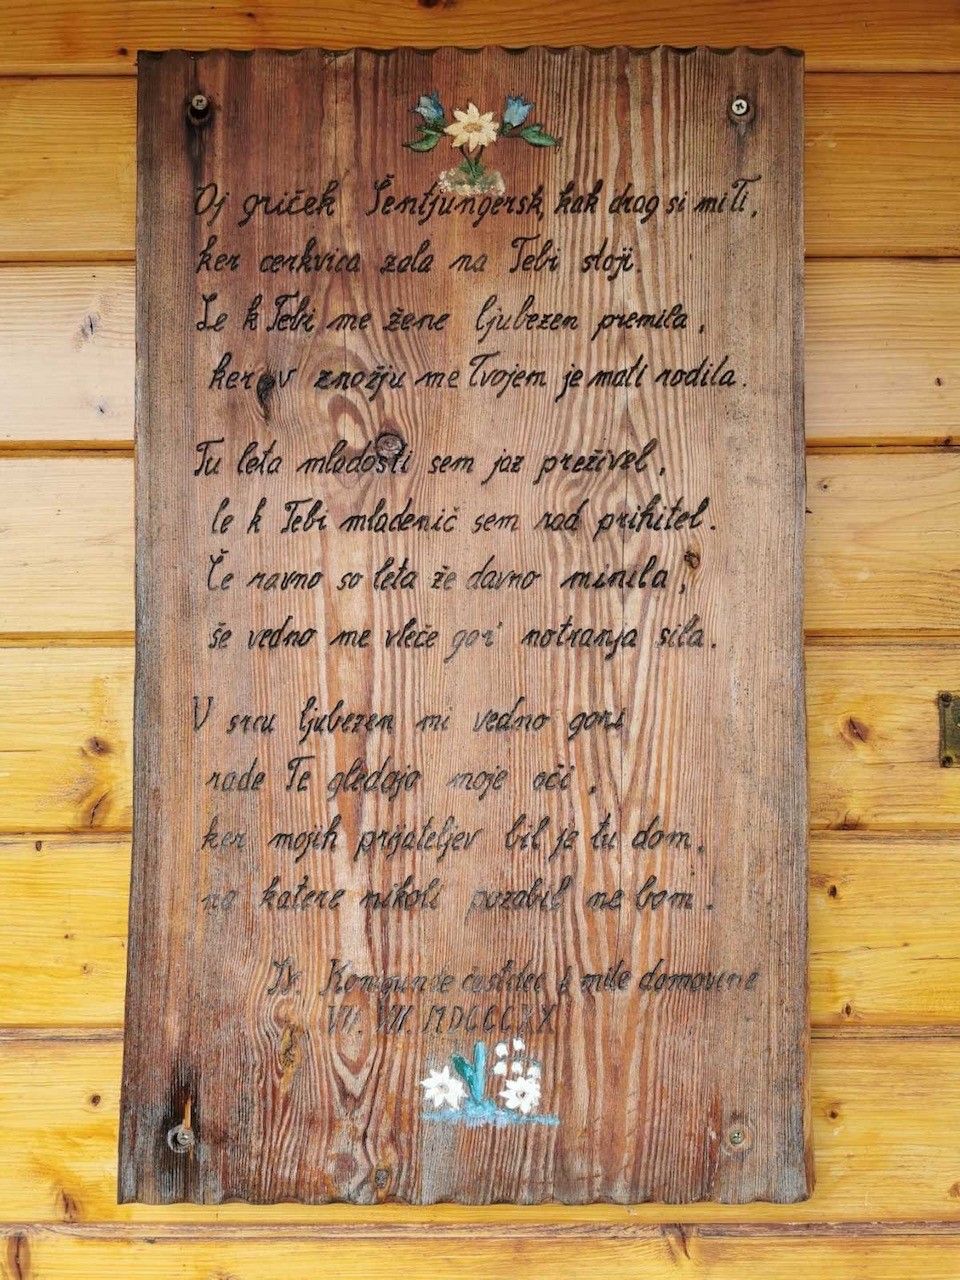 Oj griček Šentjungersk, kak drag si mi Ti,
ker cerkvica zala na Tebi stoji.
Le k Tebi me žene ljubezen premila,
ker v znožju me Tvojem je mati rodila.
Tu leta mladosti sem jaz preživel,
le k Tebi mladenič sem rad prihitel.
Če ravno so leta že davno minila,
še vedno me vleče gor' notranja sila.
V srcu ljubezen mi vedno gori
rade Te gledajo moje oči,
ker mojih prijateljev bil je tu dom,
na katere nikoli pozabil ne bom.
Sv. Kunigunde častilec mile domovine
VII. MDCCCXX